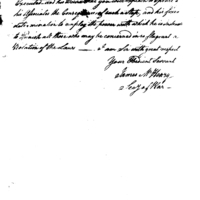 his Associates the Consequences of such a step, and his fixed
determination to employ the powers with which he is clothed
to Punish all those who may be concerned in so flagrant a
Violation of the Laws — I am Sir with great respect
Your Obedient Servant
James McHenry
Secy of War